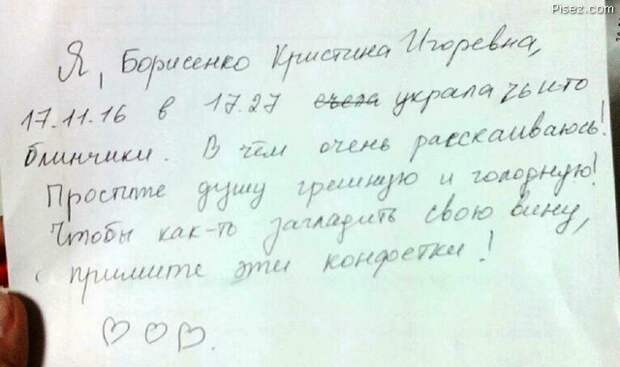 Pisez.com
Я, Борисенко Кристина Игоревна,
17.11.16 в 17.27 съела украла чьи-то
блинчики. В чём очень расскаиваюсь!
Простите душу грешную и голодную!
Чтобы как-то загладить свою вину,
примите эти конфетки!